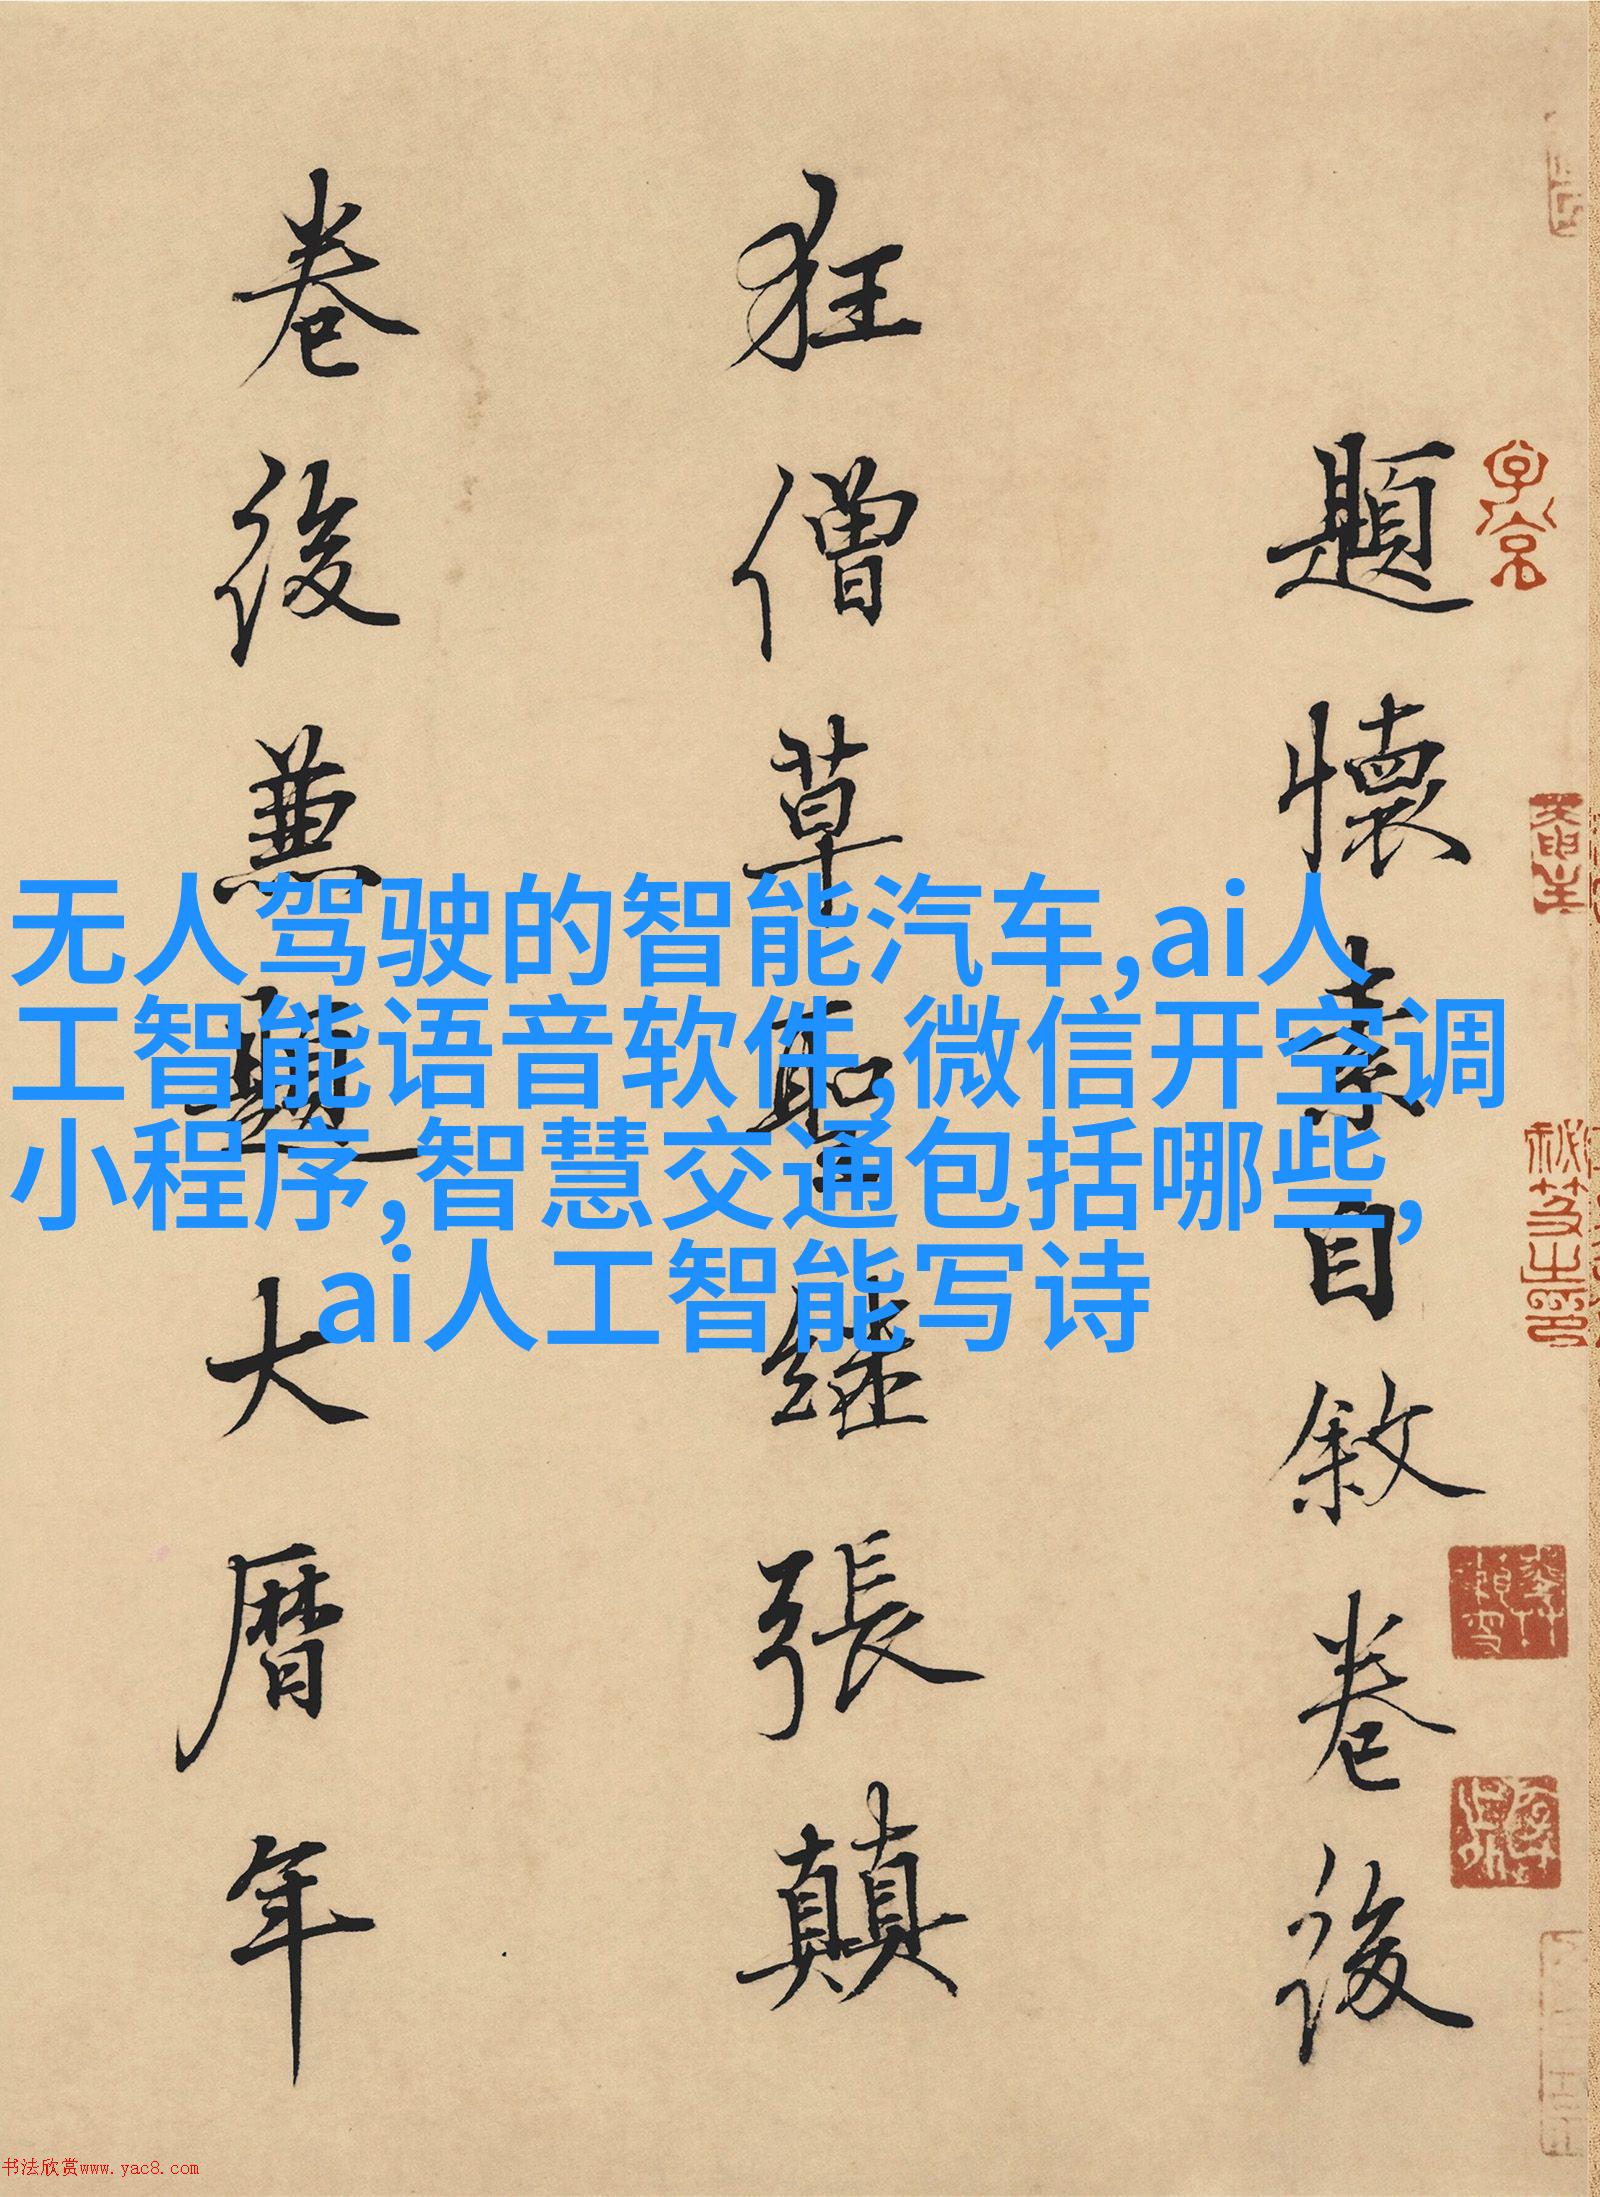 題懷素自敘卷後
狂僧草聖継張顛
卷後兼題大曆年
无人驾驶的智能汽车,ai人
工智能语音软件,微信开空调
小程序,智慧交通包括哪些,
ai人工智能写诗
书法欣赏www.yac8.com